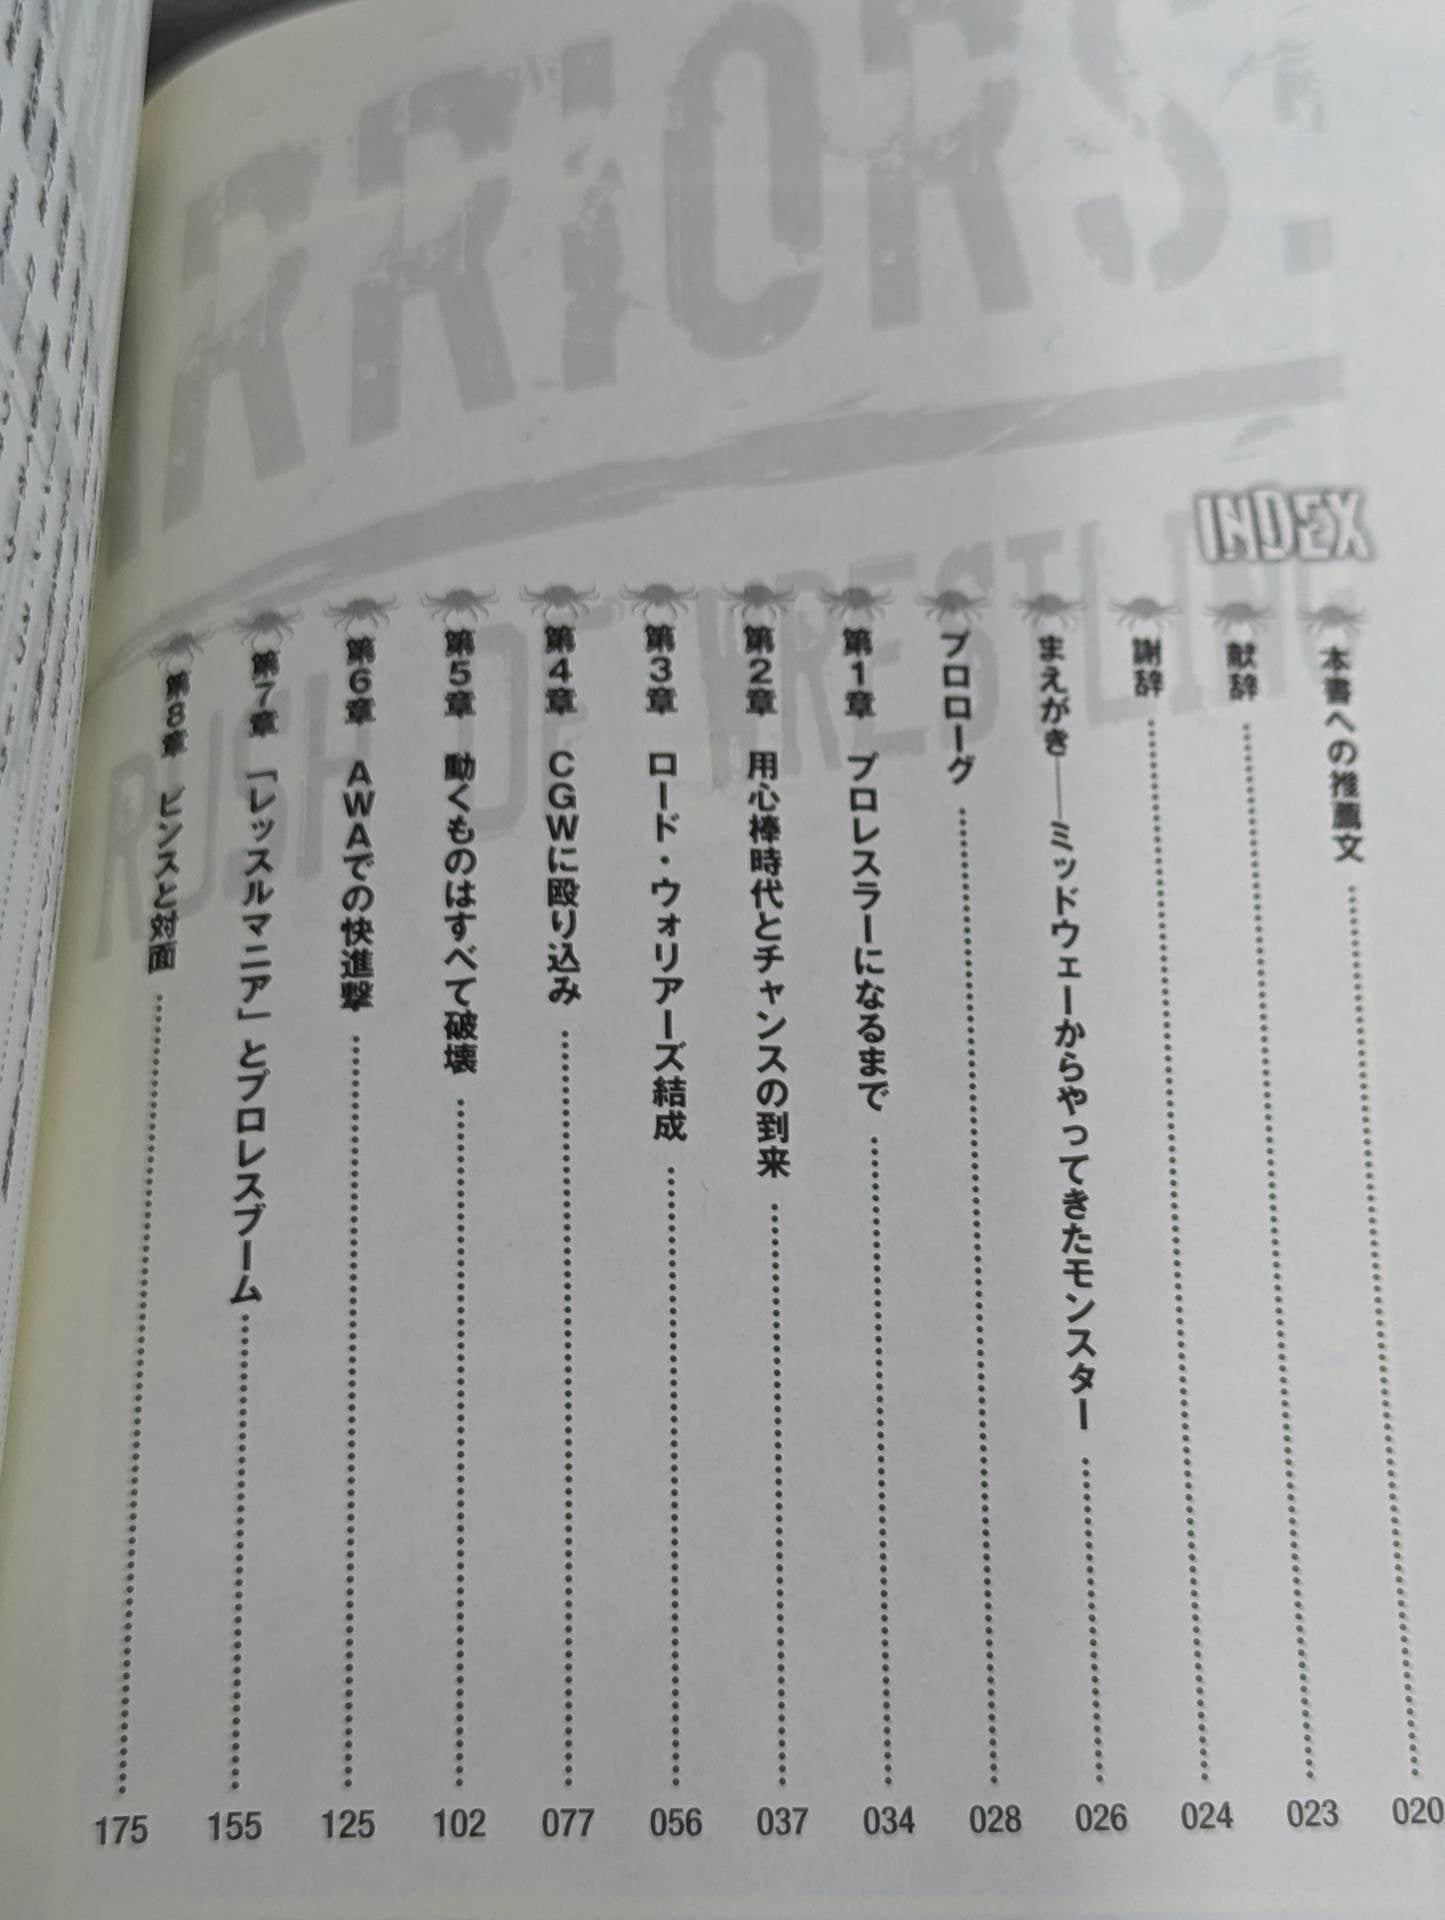 RRIORS.
RUSH OF WRESTLING
INDEX
本書への推薦文 020
献辞 023
謝辞 024
まえがき──ミッドウェーからやってきたモンスター 026
プロローグ 028
第1章 プロレスラーになるまで 034
第2章 用心棒時代とチャンスの到来 037
第3章 ロード・ウォリアーズ結成 056
第4章 CGWに殴り込み 077
第5章 動くものはすべて破壊 102
第6章 AWAでの快進撃 125
第7章 「レッスルマニア」とプロレスブーム 155
第8章 ビンスと対面 175